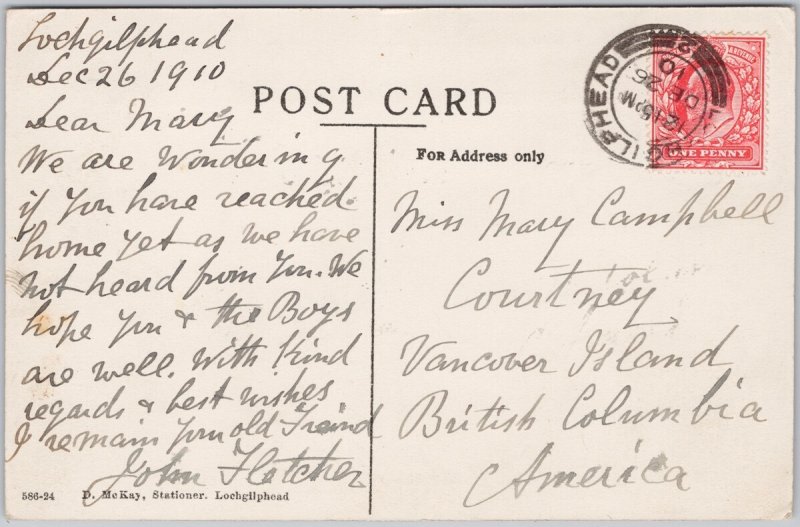 Lochgilphead
Dec 26 1910
Dear Mary
We are Wondering
if you have reached
home yet as we have
not heard from you. We
hope you & the Boys
are well. With Kind
regards & best wishes
I remain your old Freind
John Fletcher
586-24 D. McKay, Stationer. Lochgilphead
POST CARD
FOR Address only
Miss Mary Campbell
Courtney
Vancover Island
British Columbia
America
GILPHEAD
4.15PM
DE 26
10
ONE PENNY